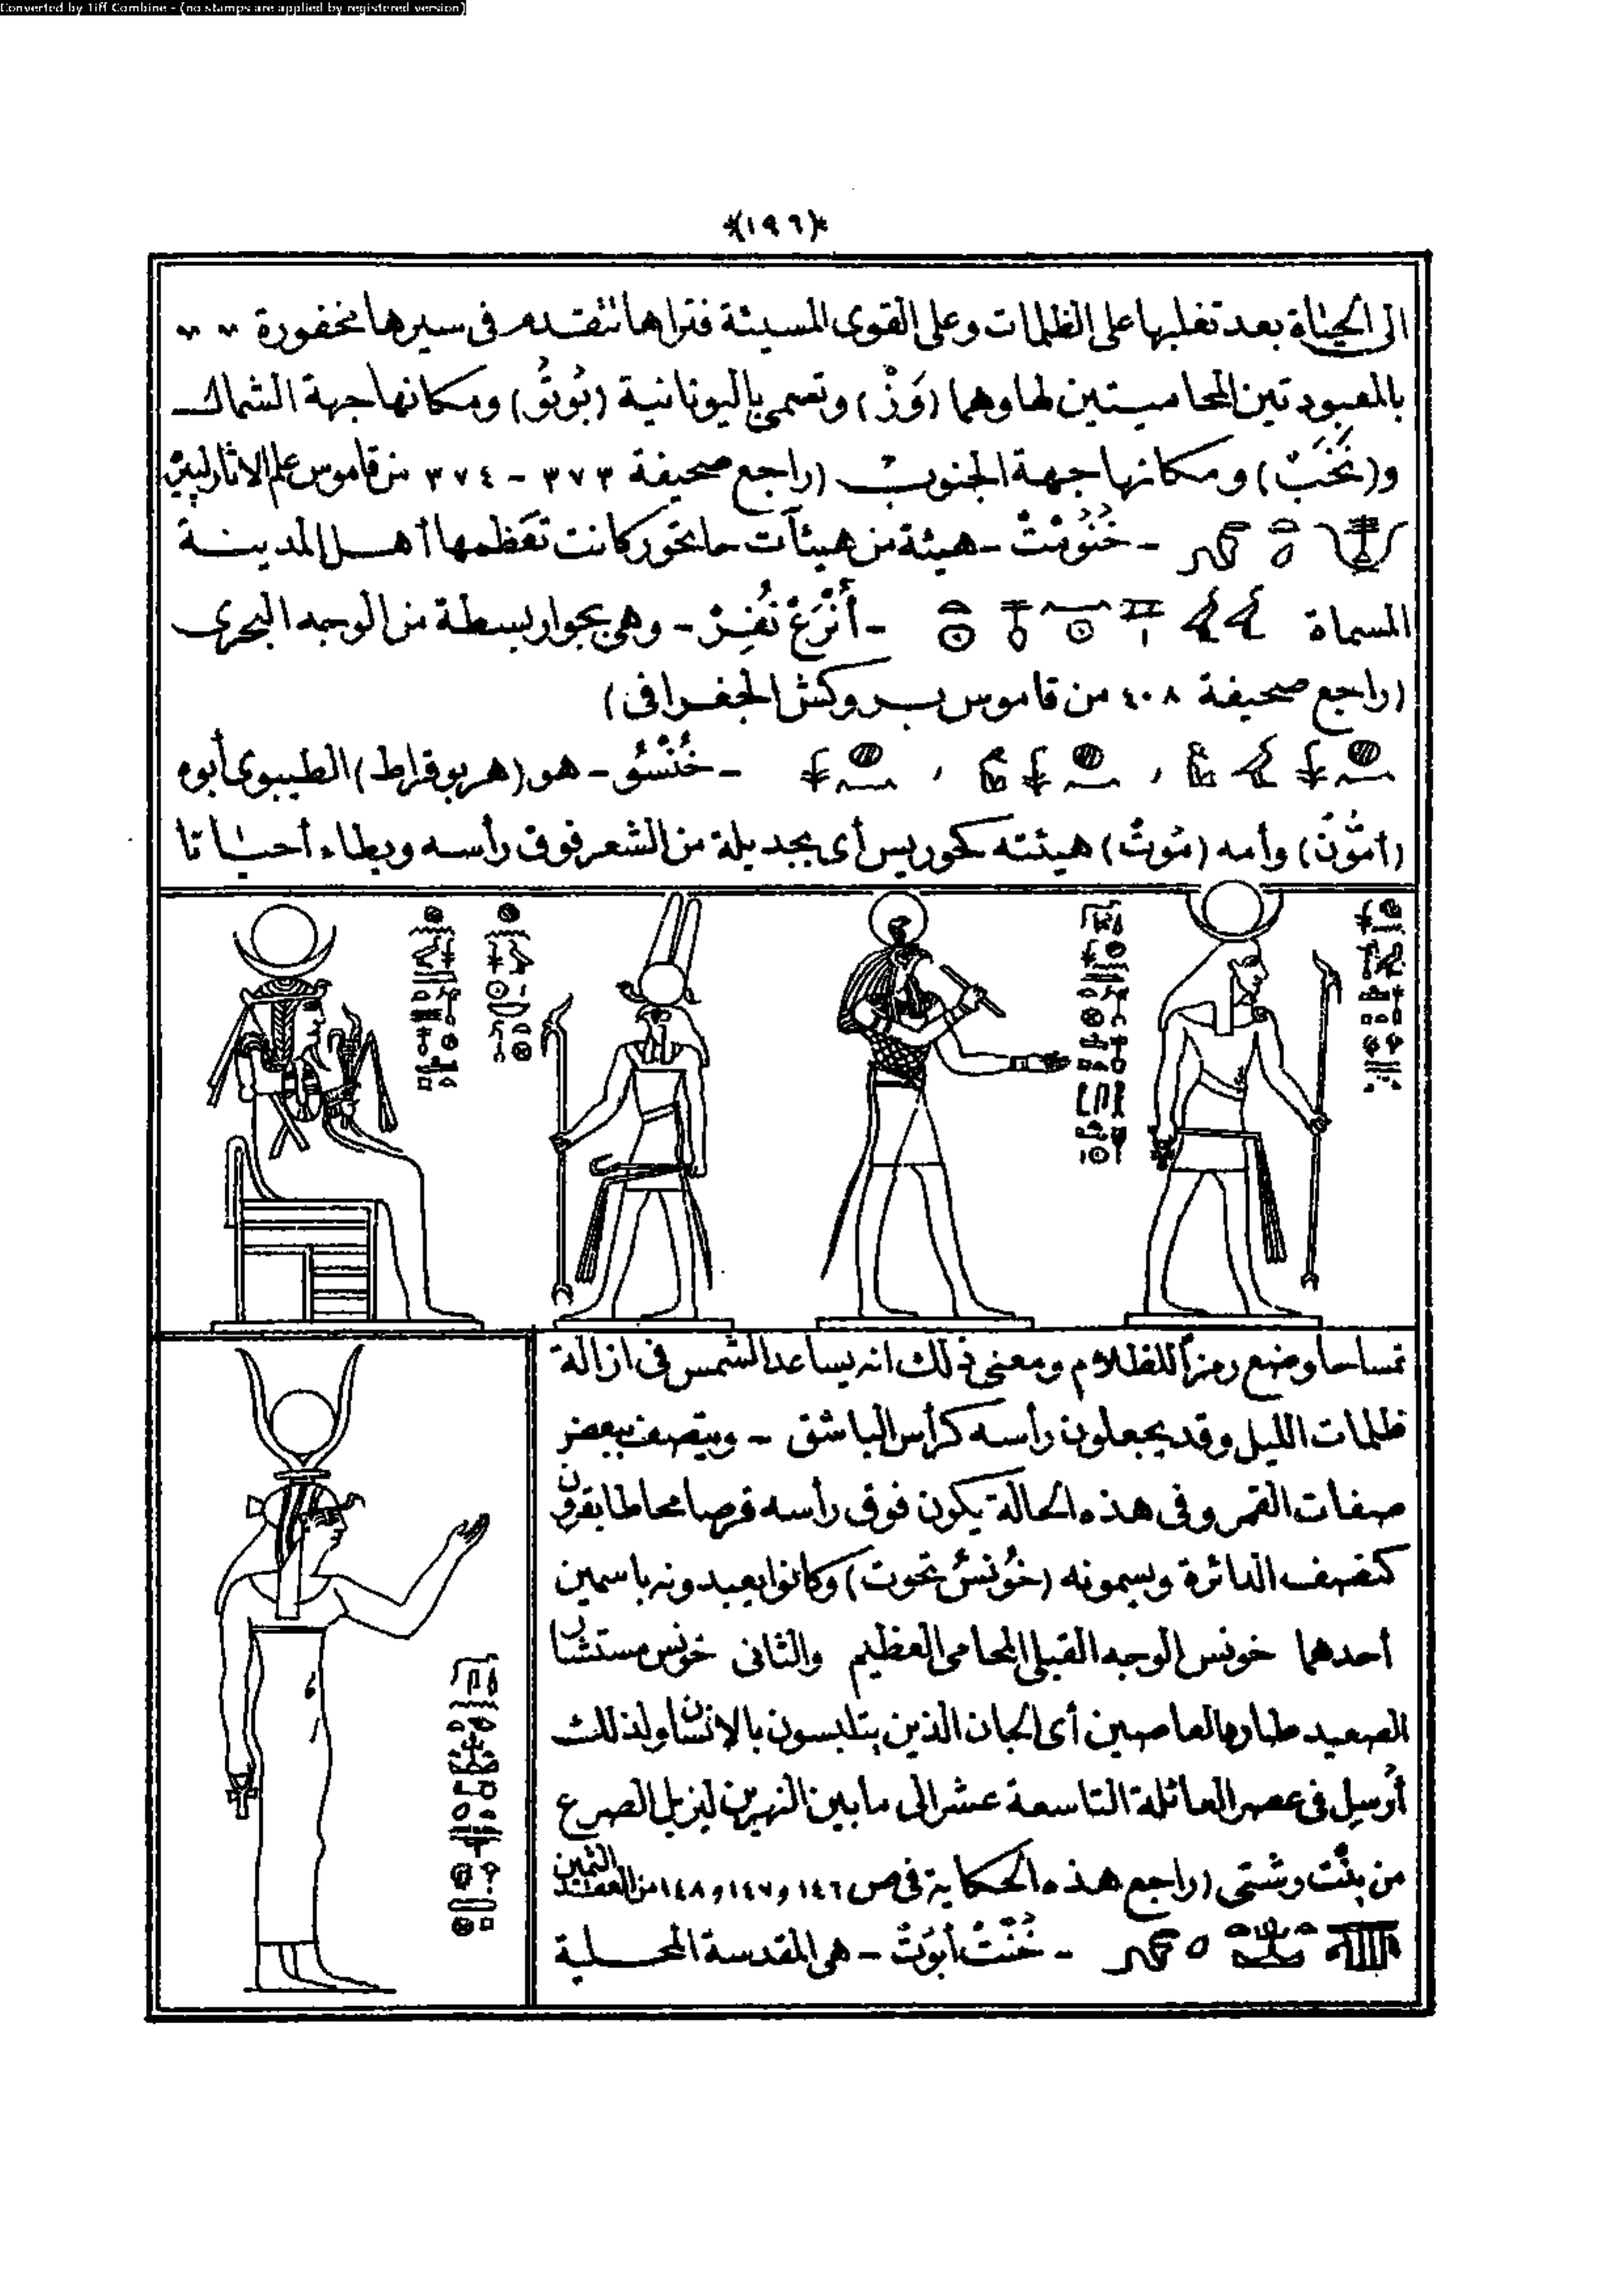 Converted by Tiff Combine - (no stamps are applied by registered version)
﴿١٩٦﴾
الى الحياة بعد تغلبها على الظلمات وعلى القوى المسيئة فتراها تتقدم فى سيرها مخفورة
بالمعبودتين المحاميتين لها وهما (وَزْ) وتسمى باليونانية (بُوتُو) ومكانها جهة الشمال
و(نَخَبْ) ومكانها جهة الجنوب (راجع صحيفة ٣٧٣ - ٣٧٤ من قاموس علم الاثار لبيير
- هيئة من هيئات حاتحور كانت تعظمها أهل المدينة
المسماة - وهى بجوار بسطة من الوجه البحرى
(راجع صحيفة ٤٠٨ من قاموس بروكش الجغرافى)
- خُنْسُو - هو (هربوقراط) الطيبوى أبوه
(أمُون) وأمه (مُوتْ) هيئته كهوريس أى بجديلة من الشعر فوق رأسه ويطاء أحيانا
تمساحا وضع رمزاً للظلام ومعنى ذلك انه يساعد الشمس فى ازالة
ظلمات الليل وقد يجعلون رأسه كرأس الباشق - ويتصف ببعض
صفات القمر وفى هذه الحالة يكون فوق رأسه قرصا محاطا بقرون
كنصف الدائرة ويسمونه (خُونْسْ تحوت) وكانوا يعبدونه باسمين
أحدهما خونس الوجه القبلى المحامى العظيم والثانى خونس مستشار
الصعيد طارد العاصين أى الجان الذين يتلبسون بالانسان ولذلك
أرسل فى عصر العائلة التاسعة عشر الى ما بين النهرين ليزيل الصرع
من بنْت رشتى (راجع هذه الحكاية فى ص ١٤٦ و١٤٧ و١٤٨ من العقد الثمين
- خُنْتْ أبوتْ - هى المقدسة المحلية